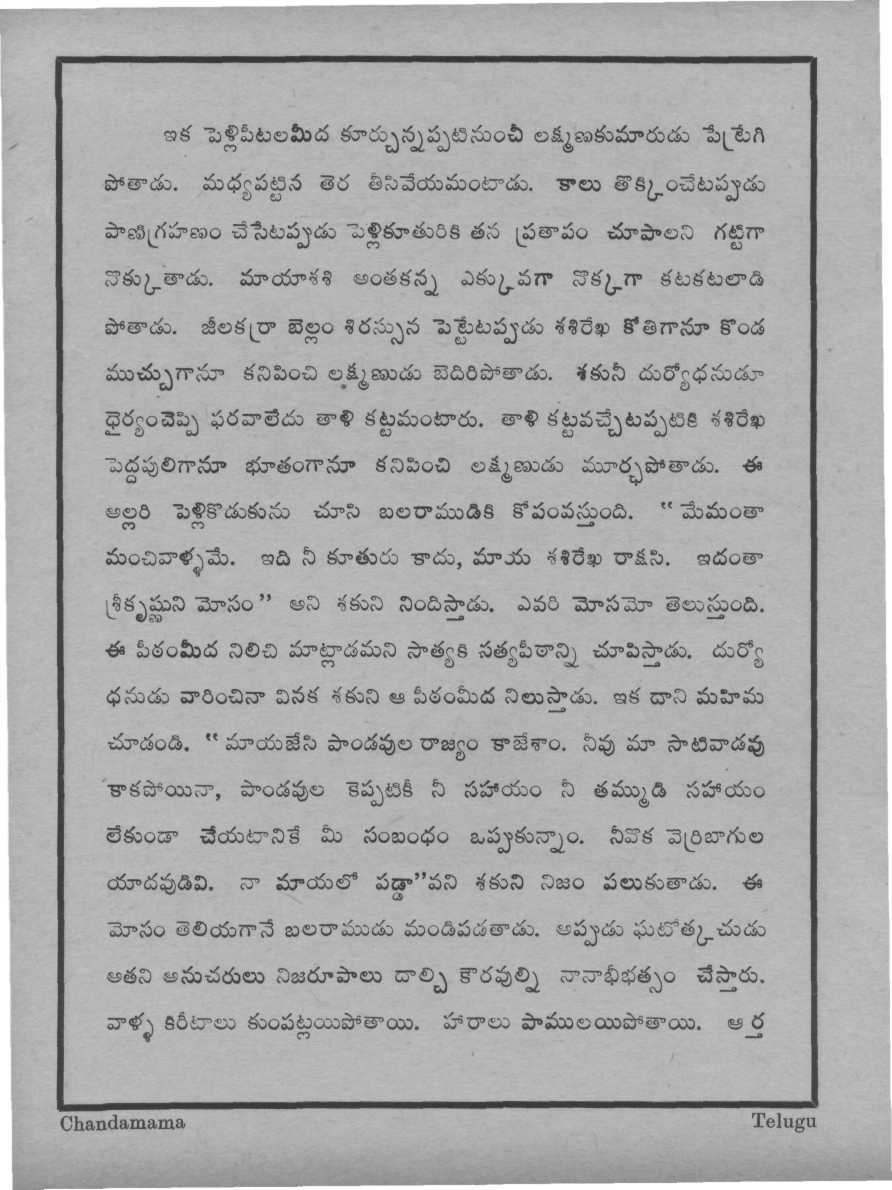 ఇక పెళ్లిపీటలమీద కూర్చున్నప్పటినుంచీ లక్ష్మణకుమారుడు పేట్రేగి
పోతాడు. మధ్యపట్టిన తెర తీసివేయమంటాడు. కాలు తొక్కించేటప్పుడు
పాణిగ్రహణం చేసేటప్పుడు పెళ్లికూతురికి తన ప్రతాపం చూపాలని గట్టిగా
నొక్కుతాడు. మాయాశశి అంతకన్న ఎక్కువగా నొక్కగా కటకటలాడి
పోతాడు. జీలకర్రా బెల్లం శిరస్సున పెట్టేటప్పుడు శశిరేఖ కోతిగానూ కొండ
ముచ్చుగానూ కనిపించి లక్ష్మణుడు బెదిరిపోతాడు. శకునీ దుర్యోధనుడూ
ధైర్యంచెప్పి ఫరవాలేదు తాళి కట్టమంటారు. తాళి కట్టవచ్చేటప్పటికి శశిరేఖ
పెద్దపులిగానూ భూతంగానూ కనిపించి లక్ష్మణుడు మూర్ఛపోతాడు. ఈ
అల్లరి పెళ్లికొడుకును చూసి బలరాముడికి కోపంవస్తుంది. “ మేమంతా
మంచివాళ్ళమే. ఇది నీ కూతురు కాదు, మాయ శశిరేఖ రాక్షసి. ఇదంతా
శ్రీకృష్ణుని మోసం” అని శకుని నిందిస్తాడు. ఎవరి మోసమో తెలుస్తుంది.
ఈ పీఠంమీద నిలిచి మాట్లాడమని సాత్యకి సత్యపీఠాన్ని చూపిస్తాడు. దుర్యో
ధనుడు వారించినా వినక శకుని ఆ పీఠంమీద నిలుస్తాడు. ఇక దాని మహిమ
చూడండి. “ మాయజేసి పాండవుల రాజ్యం కాజేశాం. నీవు మా సాటివాడవు
కాకపోయినా, పాండవుల కెప్పటికీ నీ సహాయం నీ తమ్ముడి సహాయం
లేకుండా చేయటానికే మీ సంబంధం ఒప్పుకున్నాం. నీవొక వెర్రిబాగుల
యాదవుడివి. నా మాయలో పడ్డా”వని శకుని నిజం పలుకుతాడు. ఈ
మోసం తెలియగానే బలరాముడు మండిపడతాడు. అప్పుడు ఘటోత్కచుడు
అతని అనుచరులు నిజరూపాలు దాల్చి కౌరవుల్ని నానాభీభత్సం చేస్తారు.
వాళ్ళ కిరీటాలు కుంపట్లయిపోతాయి. హారాలు పాములయిపోతాయి. ఆ ర్త
Chandamama Telugu